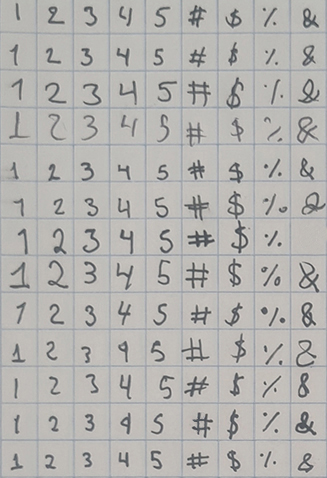 1 2 3 4 5 # $ % &
1 2 3 4 5 # $ % &
1 2 3 4 5 # $ % &
1 2 3 4 5 # $ % &
1 2 3 4 5 # $ % &
1 2 3 4 5 # $ % &
1 2 3 4 5 # $ %
1 2 3 4 5 # $ % &
1 2 3 4 5 # $ % &
1 2 3 4 5 # $ % &
1 2 3 4 5 # $ % &
1 2 3 4 5 # $ % &
1 2 3 4 5 # $ % &